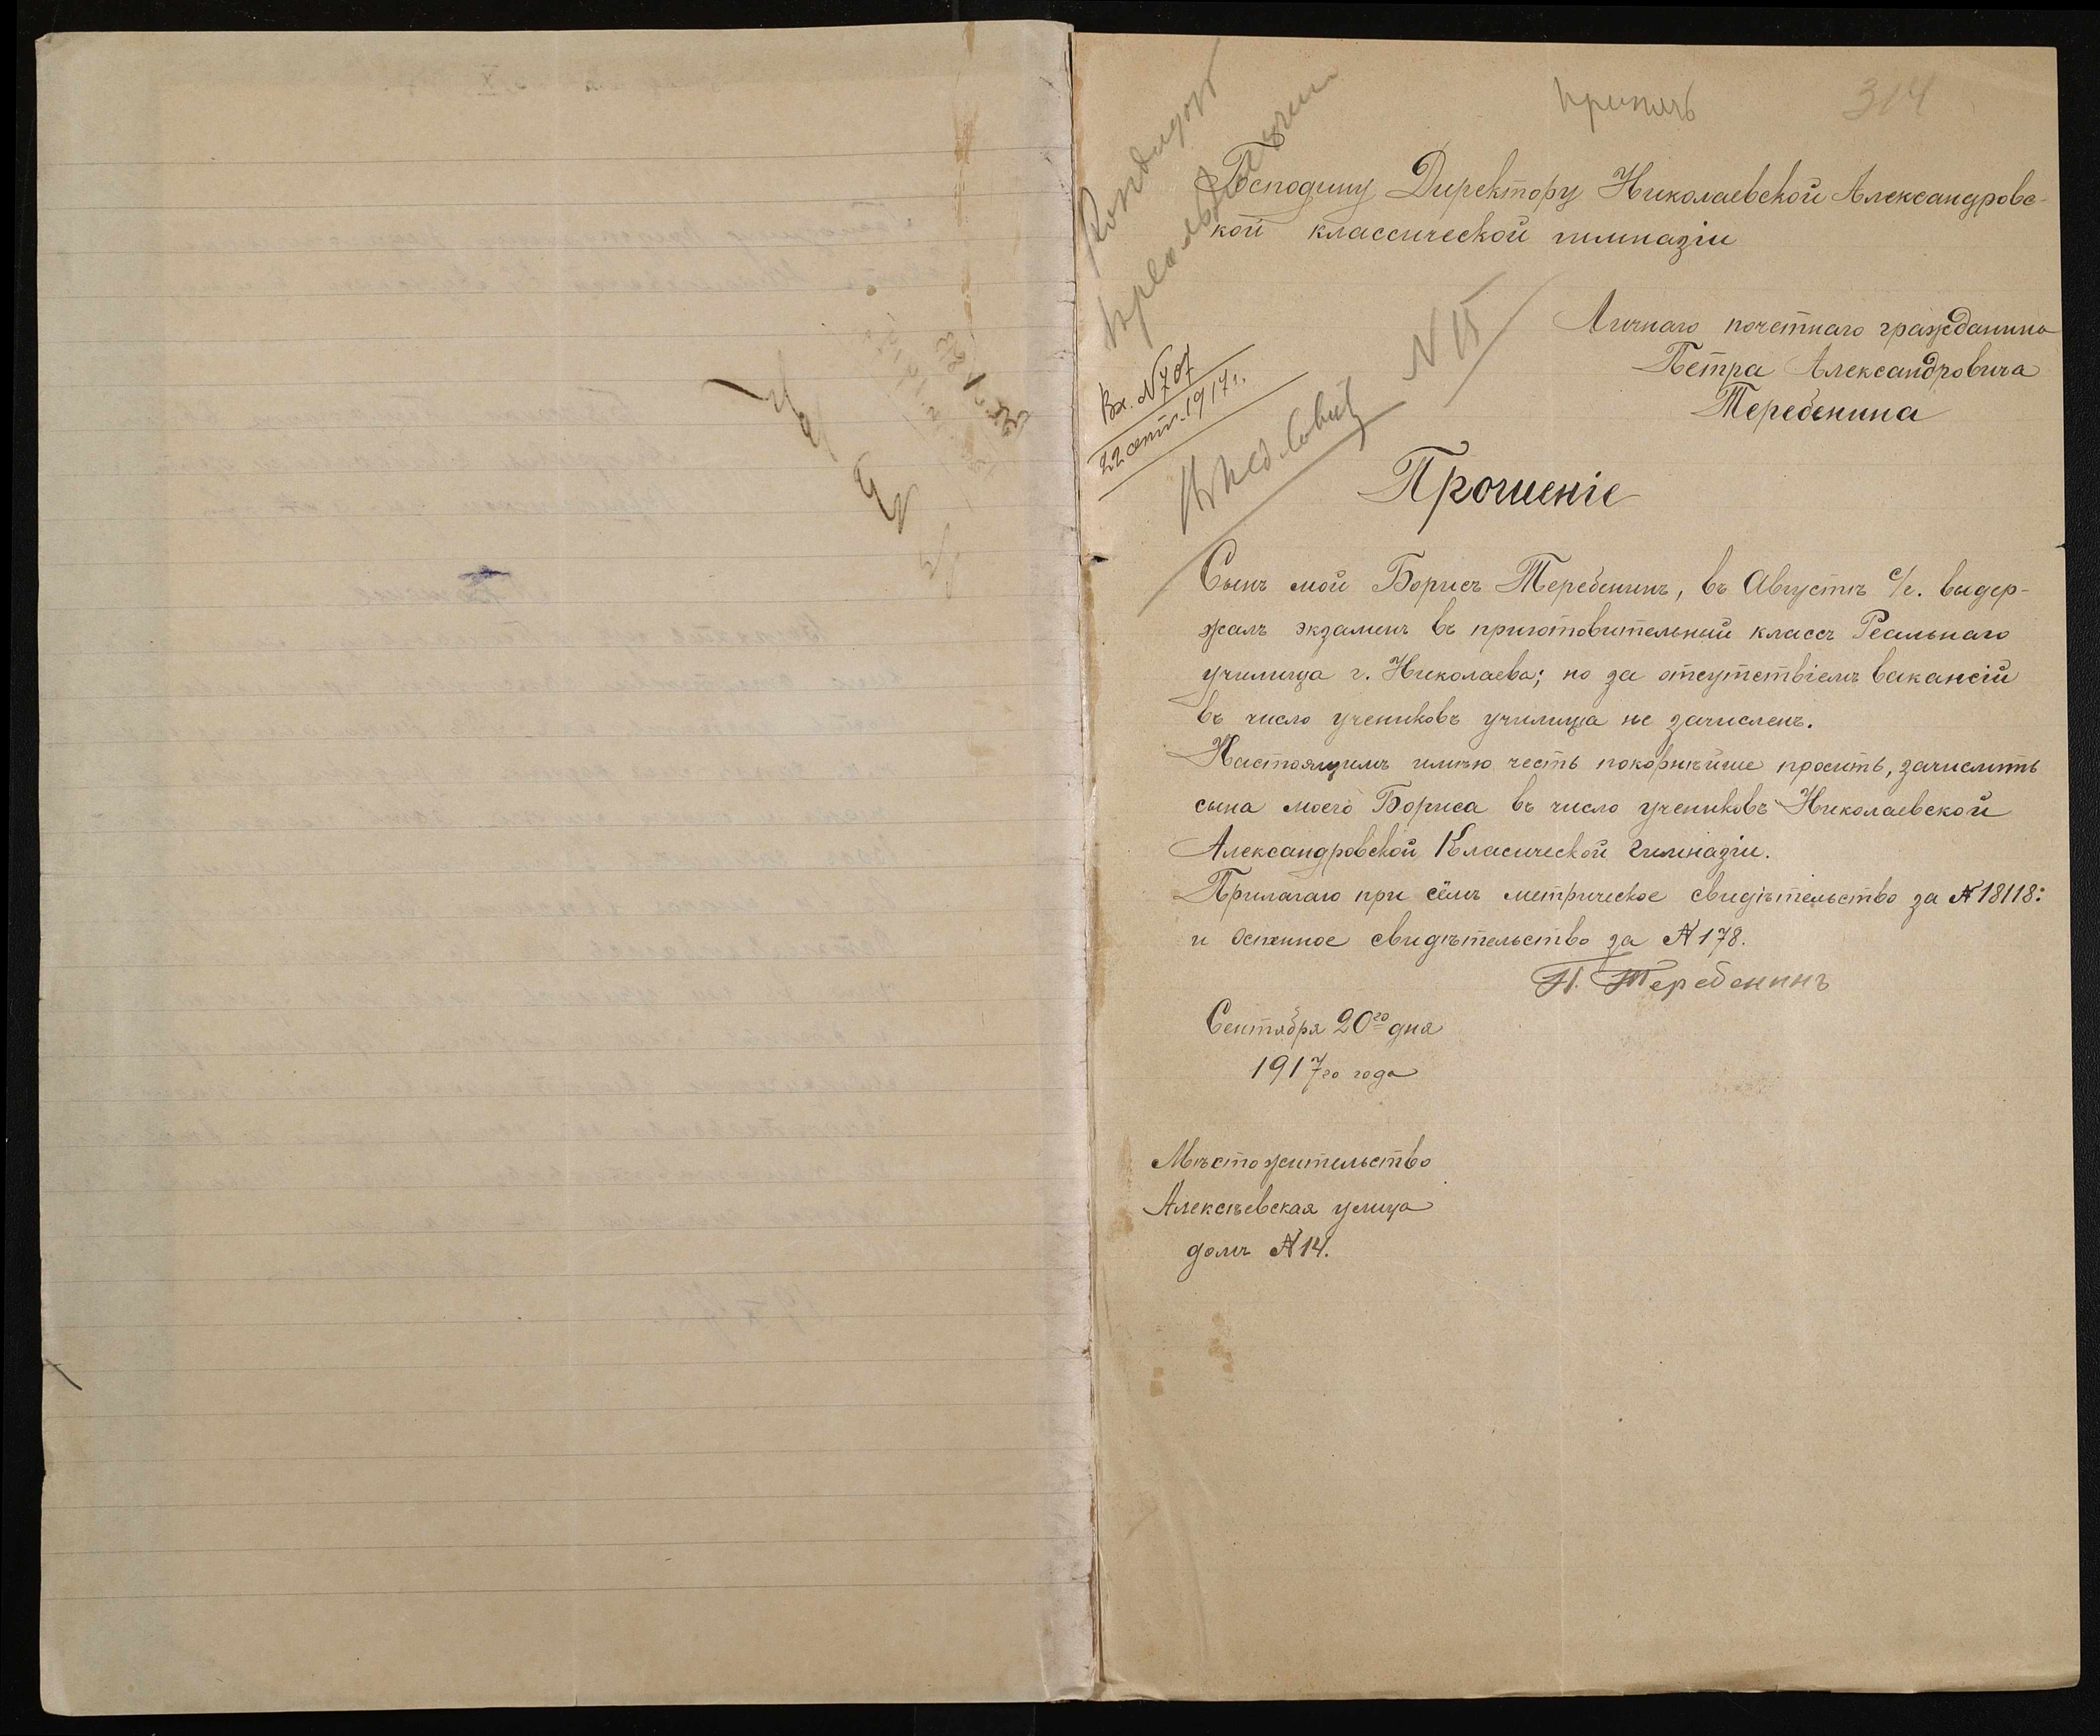 314
Господину Директору Николаевской Александровс-
кой классической гимназіи
Личнаго почетнаго гражданина
Петра Александровича
Теребенина
Вх. №707
22 сент. 1917 г.
Прошеніе
Сынъ мой Борисъ Теребенинъ, въ Августѣ с/г. выдер-
жалъ экзаменъ въ приготовительный классъ Реальнаго
училища г. Николаева; но за отсутствіемъ вакансій
въ число учениковъ училища не зачисленъ.
Настоящимъ имѣю честь покорнѣйше просить, зачислить
сына моего Бориса въ число учениковъ Николаевской
Александровской Класической Гимназіи.
Прилагаю при сёмъ метрическое свидѣтельство за №18118:
и оспенное свидѣтельство за №178.
П. Теребенинъ
Сентября 20го дня
1917го года
Мѣстожительство
Алексѣевская улица
домъ №14.